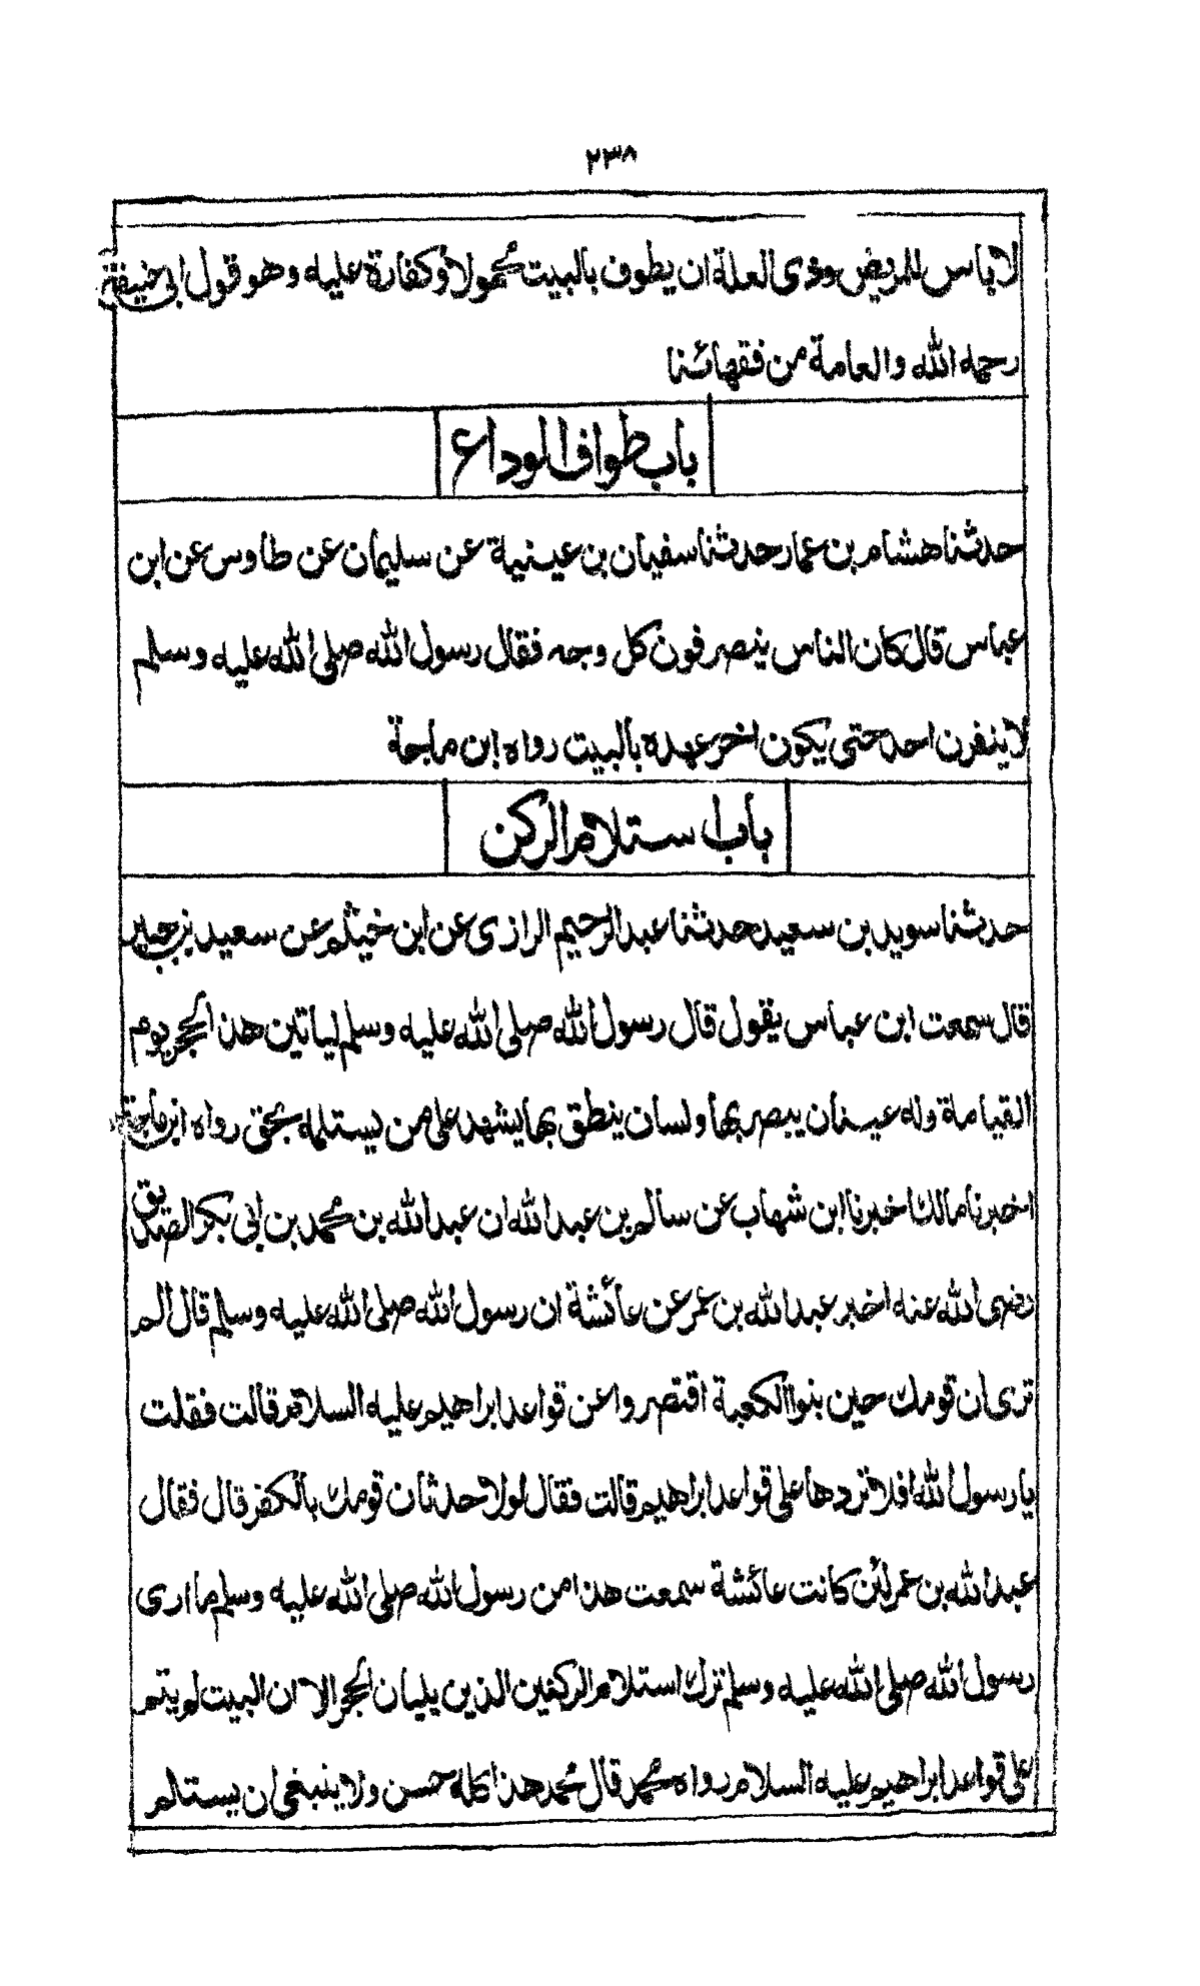 ٢٣٨
لا باس للمريض وذى العلة ان يطوف بالبيت محمولا وكفارة عليه وهو قول ابى حنيفة
رحمه الله والعامة من فقهائنا
باب طواف الوداع
حدثنا هشام بن عمار حدثنا سفيان بن عيينة عن سليمان عن طاوس عن ابن
عباس قال كان الناس ينصرفون كل وجه فقال رسول الله صلى الله عليه وسلم
لا ينفرن احد حتى يكون اخر عهده بالبيت رواه ابن ماجة
باب استلام الركن
حدثنا سويد بن سعيد حدثنا عبد الرحيم الرازى عن ابن خيثم عن سعيد بن جبير
قال سمعت ابن عباس يقول قال رسول الله صلى الله عليه وسلم لياتين هذا الحجر يوم
القيامة وله عينان يبصر بها ولسان ينطق بها يشهد على من يستلمه بحق رواه ابن ماجة
اخبرنا مالك اخبرنا ابن شهاب عن سالم بن عبد الله ان عبد الله بن محمد بن ابى بكر الصديق
رضى الله عنه اخبر عبد الله بن عمر عن عائشة ان رسول الله صلى الله عليه وسلم قال الم
ترى ان قومك حين بنوا الكعبة اقتصروا عن قواعد ابراهيم عليه السلام قالت فقلت
يا رسول الله افلا تردها على قواعد ابراهيم قالت فقال لولا حدثان قومك بالكفر قال فقال
عبد الله بن عمر لئن كانت عائشة سمعت هذا من رسول الله صلى الله عليه وسلم ما ارى
رسول الله صلى الله عليه وسلم ترك استلام الركنين الذين يليان الحجر الا ان البيت لم يتم
على قواعد ابراهيم عليه السلام رواه محمد قال محمد هذا كله حسن ولا ينبغى ان يستلم